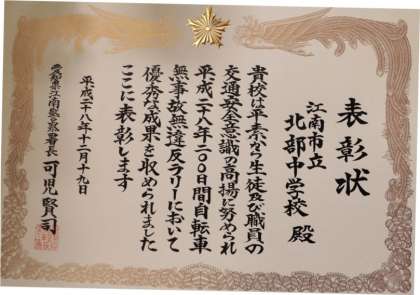 表彰状
江南市立
北部中学校 殿
貴校は平素から生徒及び職員の
交通安全意識の高揚に努められ
平成二八年二〇〇日間自転車
無事故無違反ラリーにおいて
優秀な成果を収められました
ここに表彰します
平成二十八年十二月十九日
愛知県江南警察署長 可児賢司